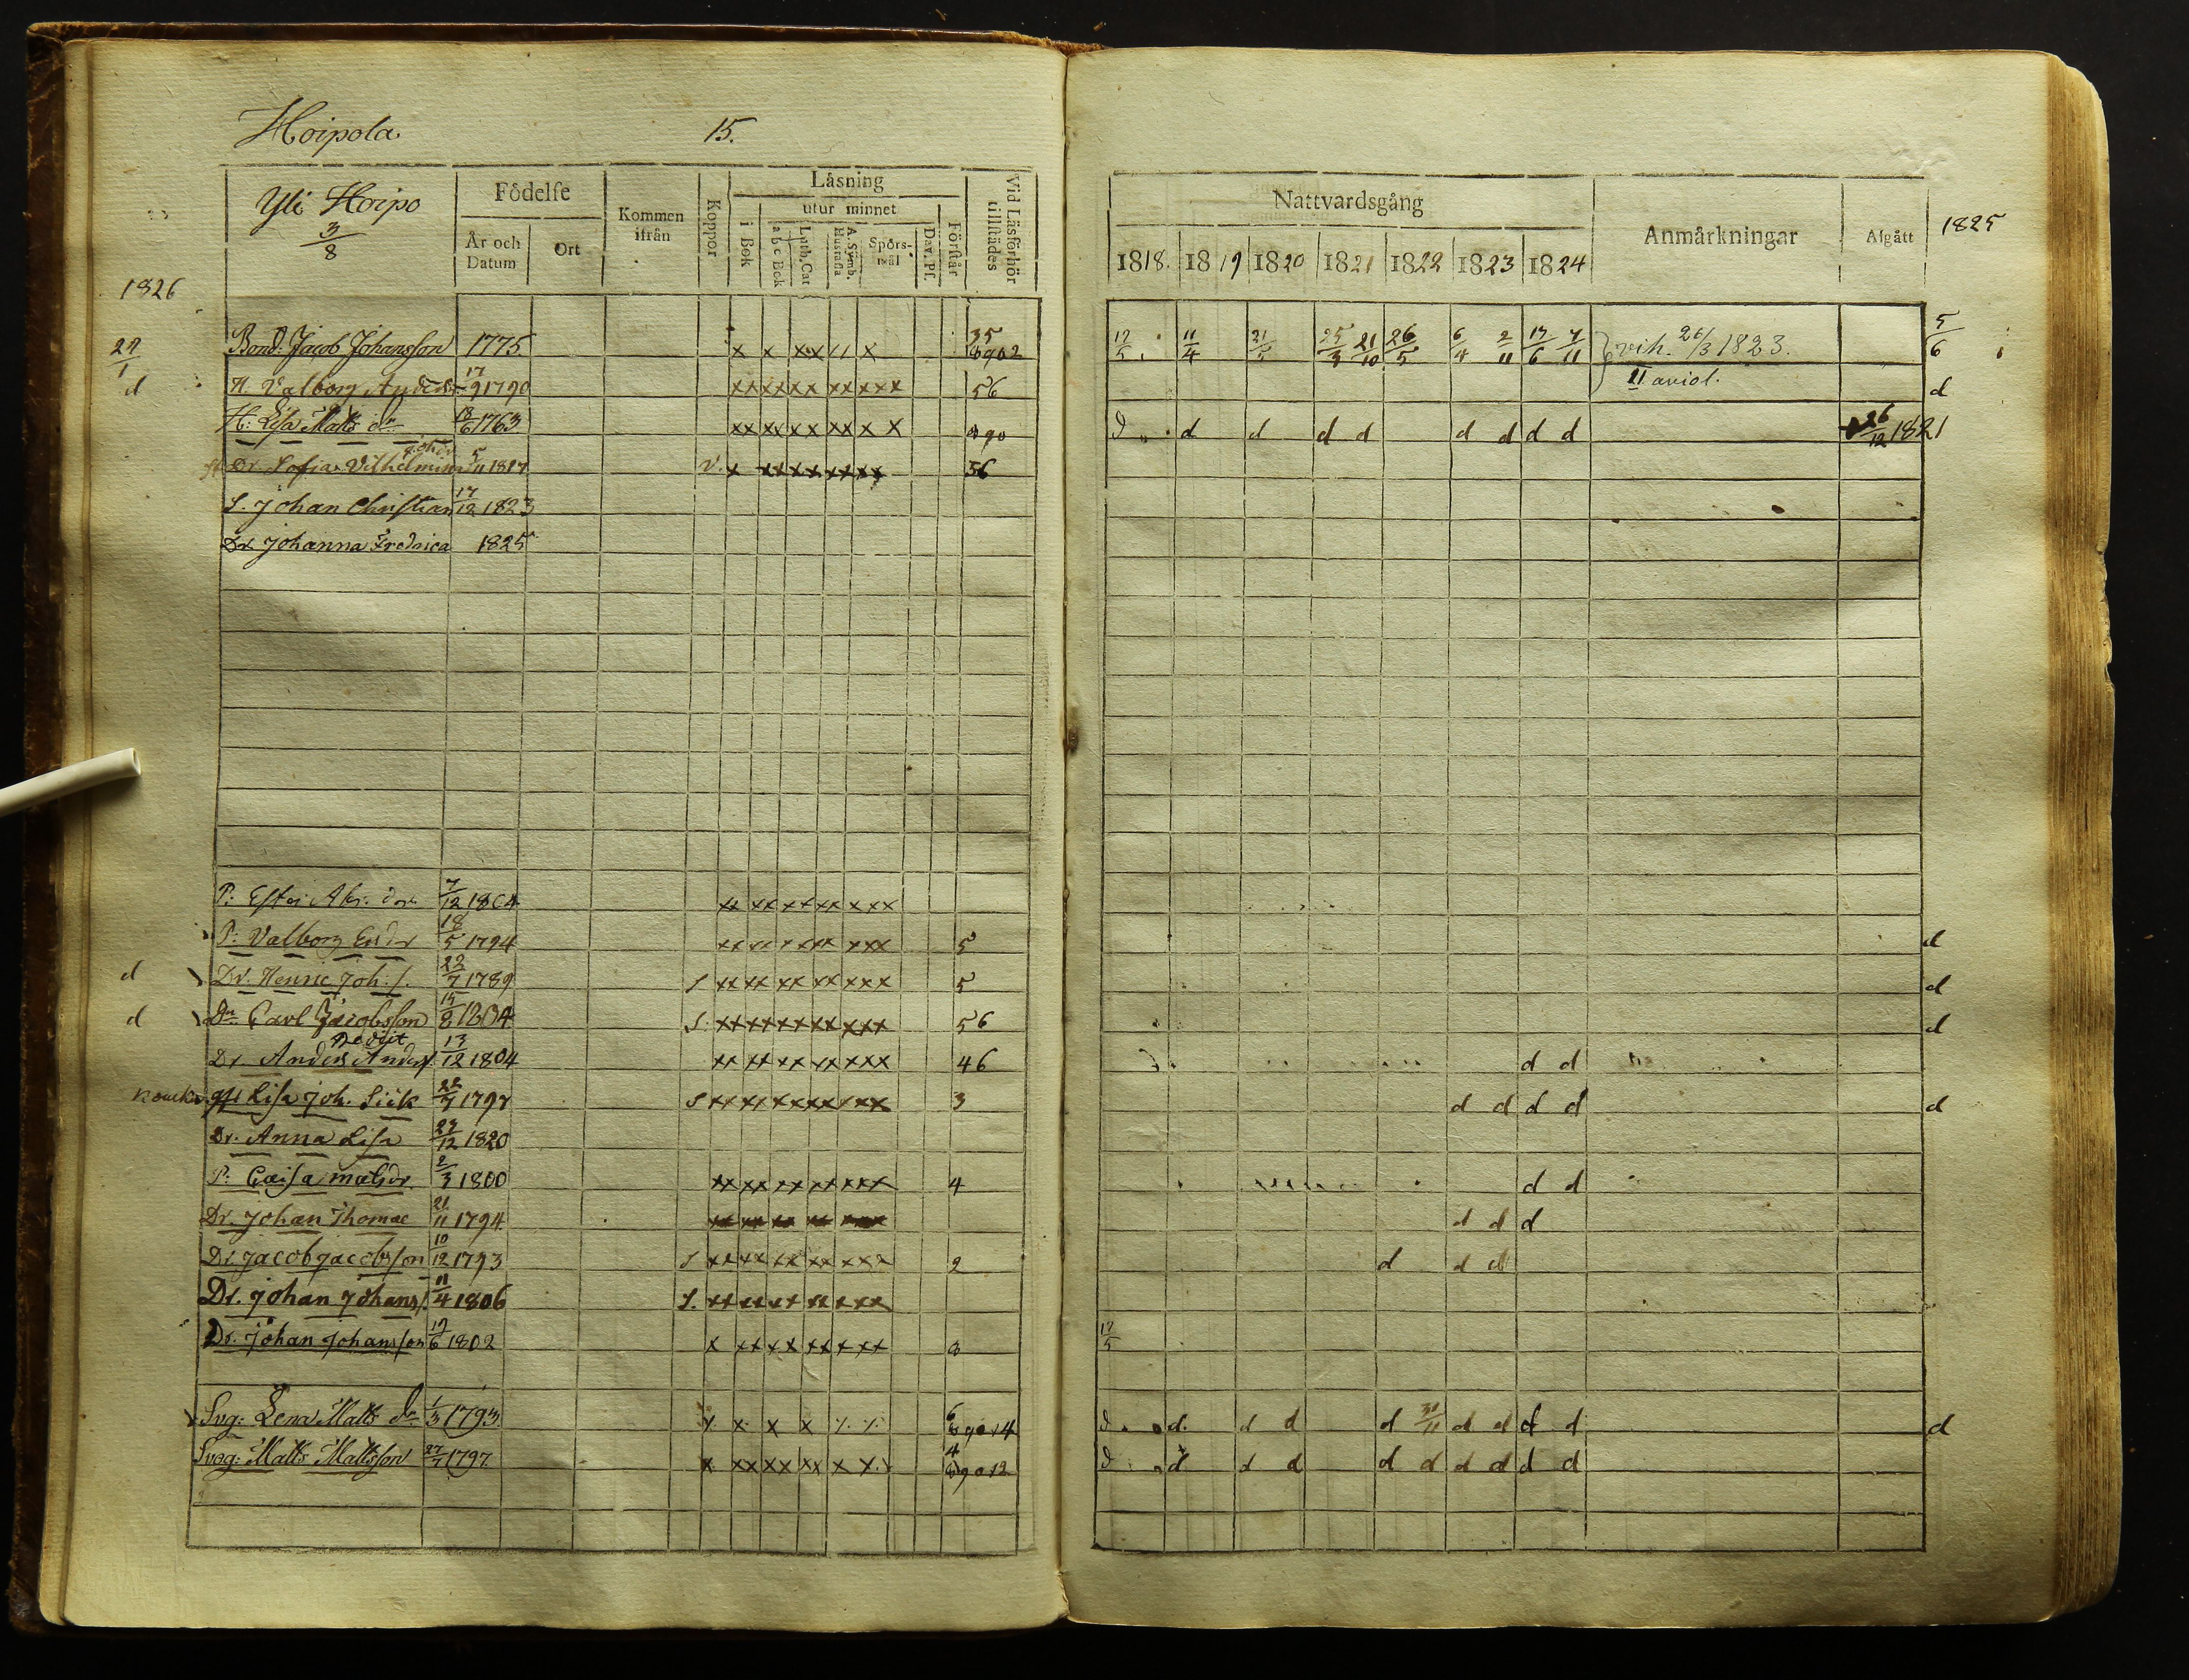 Hoipola
15.
Yli Hoipo
3/8
Födelse
År och Datum
Ort
Kommen ifrån
Koppor
Låsning
utur minnet
i Bok
a b c Bok
Luth. Cat
A. Symb. Hustafla
Spörs-mål
Dav. Ps.
Förstår
Vid Läsförhör tillstädes
Nattvardsgång
1818. 1819 1820 1821 1822 1823 1824
Anmårkningar
Afgått
1825
1826
27/1 Bond. Jacob Johansson 1775 x x xx 11 x 35 8902 17/5 11/4 21/5 25/3 21/10 26/5 6/4 2/11 13/6 7/11 vih. 26/3 1823. 5/6
d H. Valborg Andersdr 17/9 1790 xx xx xx xx xxx 56 II aviol. d
H: Lisa Matts dr 18/6 1763 xx xx xx xx x x 890 d d d d d d d d d 26/12 1821
Dr. Sofia Vilhelmina Johdr 5/11 1817 V. x xx xx xx xx 56
S. Johan Christian 17/12 1823
Dr Johanna Fredrica 1825
P: Ester Abr. dr 7/12 1804 xx xx xx xx xxx
P: Valborg Ersdr 18/5 1794 xx xx xx xx xxx 5 d
d Dr. Henric Joh:s. 22/7 1789 S xx xx xx xx xxx 5 d
d Dr Carl Jacobsson 14/8 1804 S. xx xx xx xx xxx 56 d
Dr. Anders Anders. 13/12 1804 xx xx xx xx xxx 46 d d
Lisa Joh. Siik 22/7 1797 S xx xx xx xx xxx 3 d d d d d
Dr. Anna Lisa 23/12 1820
P: Caisa matsdr. 2/3 1800 xx xx xx xx xxx 4 d d
Dr. Johan Thomae 21/11 1794 xx xx xx xx xxx d d d
Dr. Jacob Jacobsson 10/12 1793 S xx xx xx xx xxx 2 d d d
Dr. Johan Johans. 11/4 1806 S. xx xx xx xx xxx
Dr. Johan Johansson 19/6 1802 x xx xx xx xxx 8 17/5
Svg: Lena Matts dr 1/3 1793. x x x 6 d d. d d d 31/11 d d d d d
Svog: Matts Mattsson 27/7 1797. x xx xx xx x x 4 89012 d d d d d d d d d d